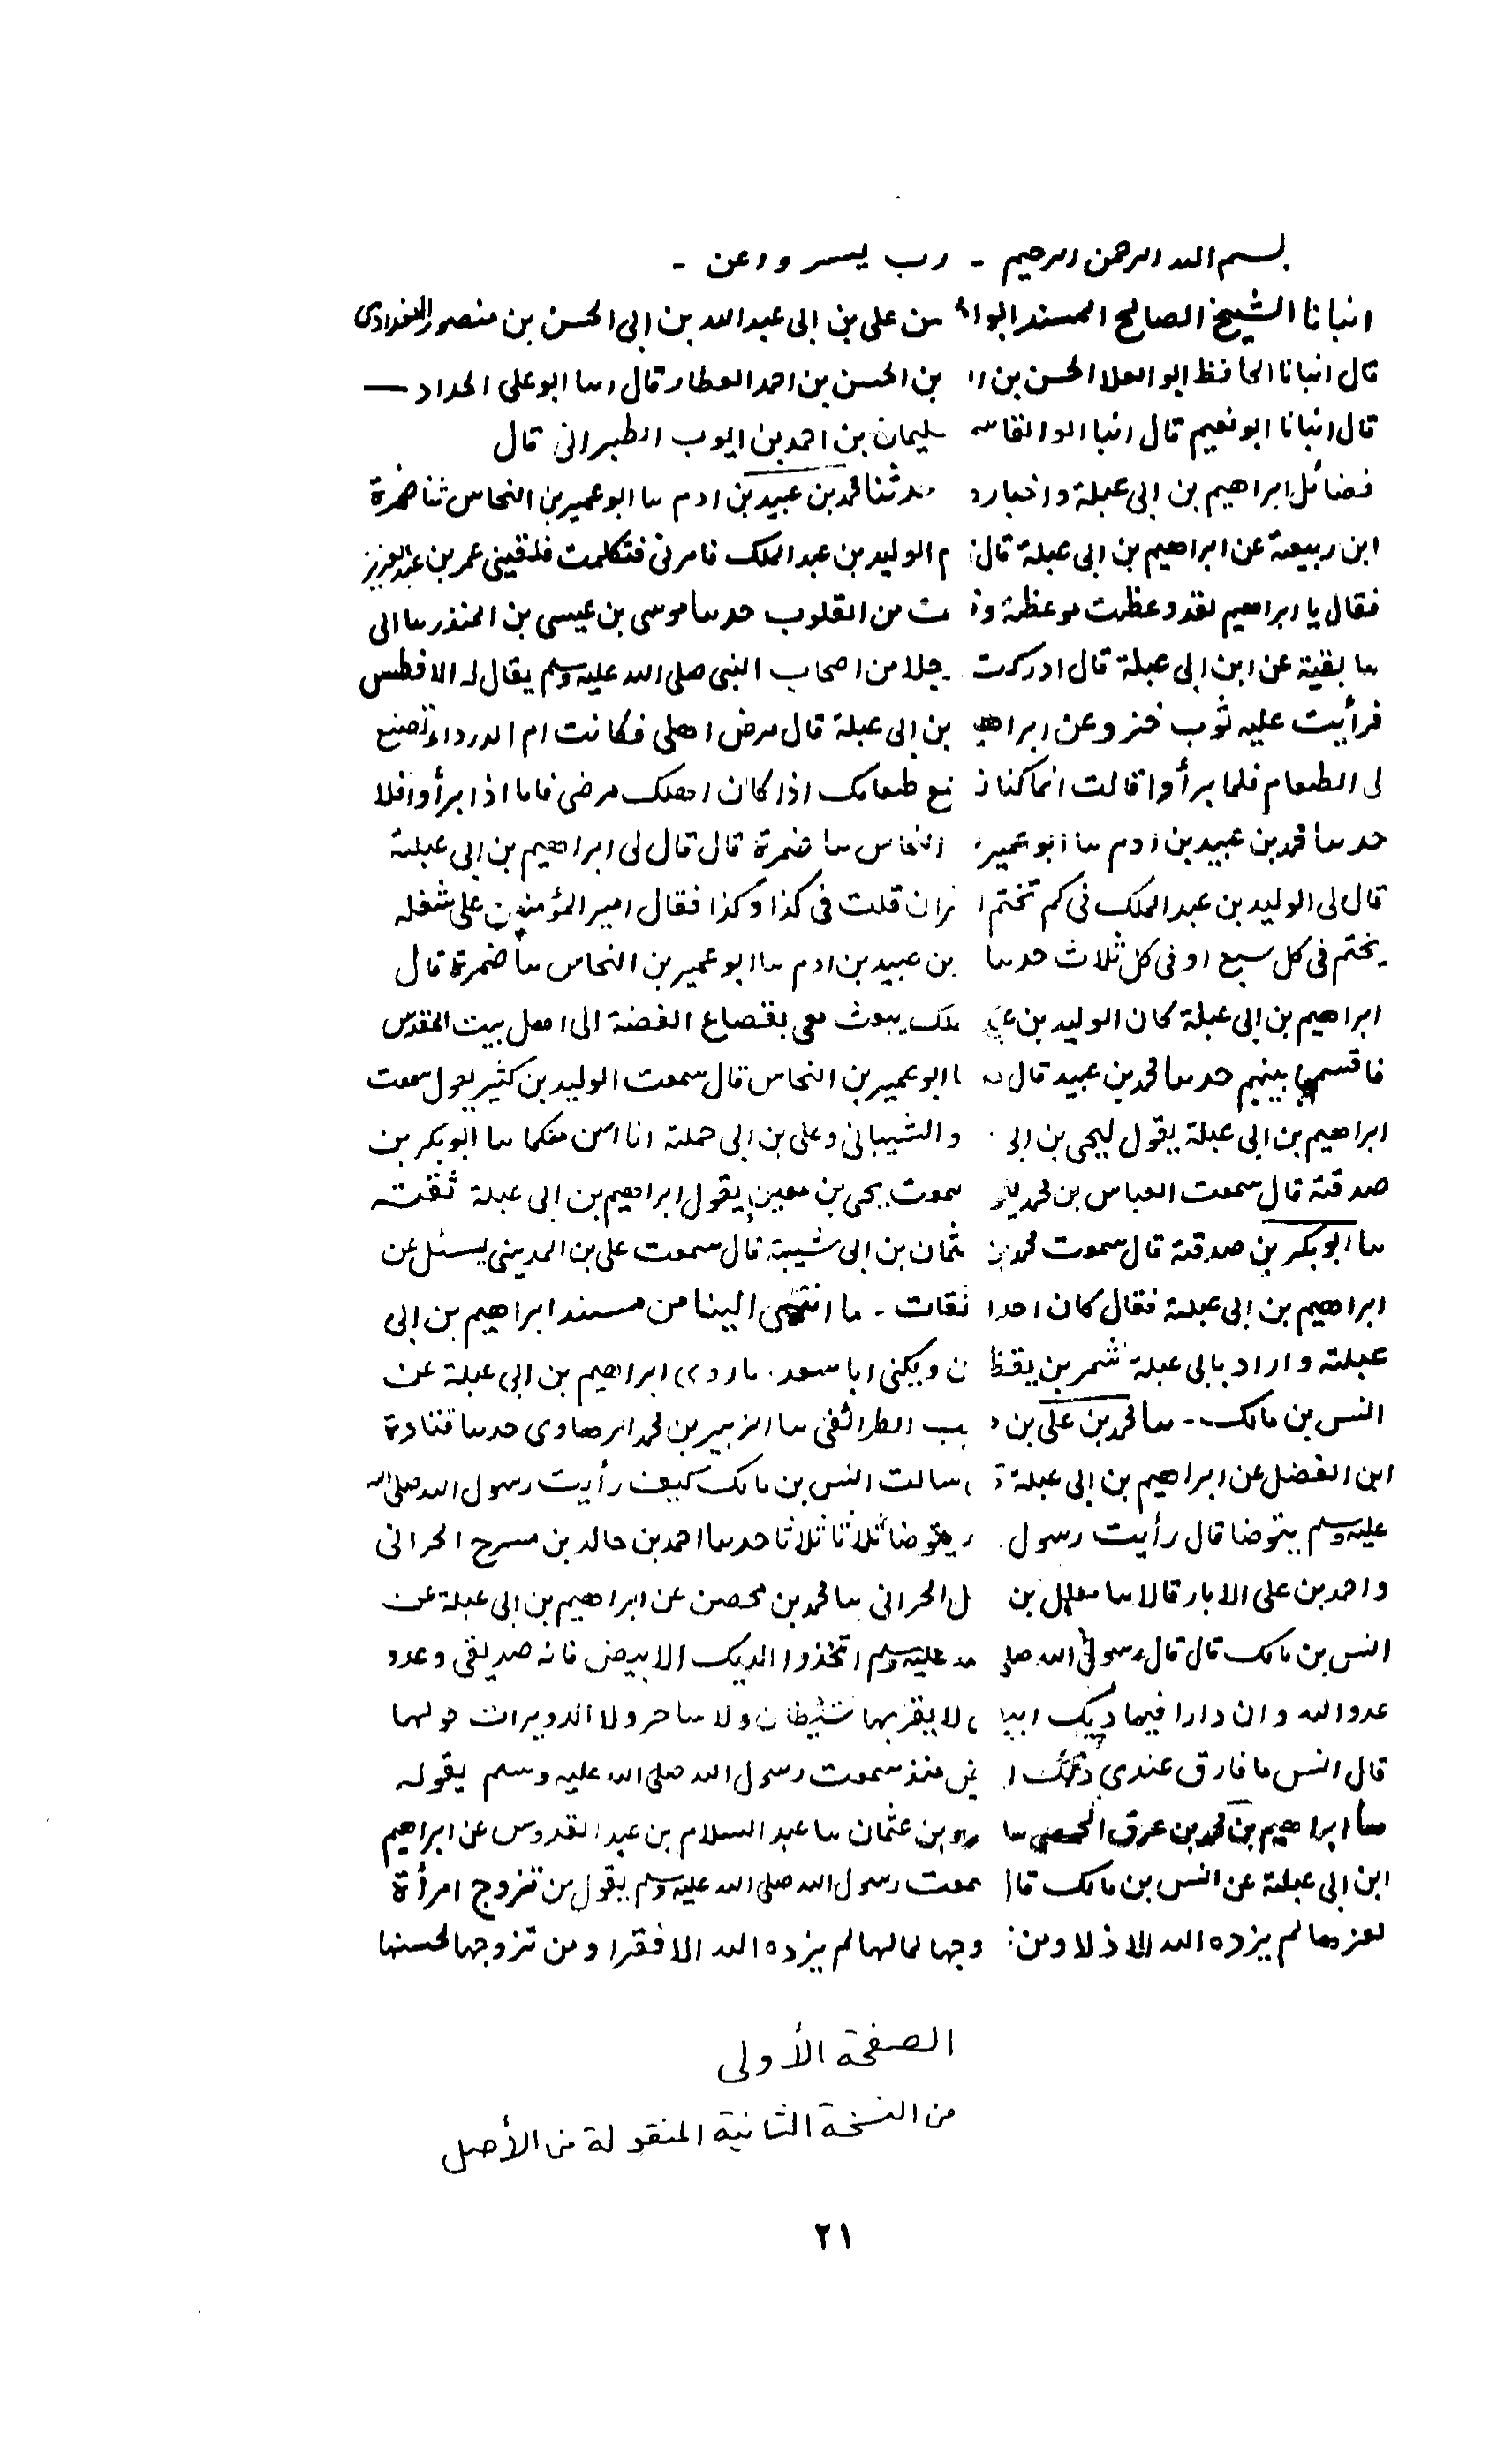 بسم الله الرحمن الرحيم - رب يسر واعن -
انبانا الشيخ الصالح المسند ابو ا سن على بن ابى عبدالله بن ابى الحسن بن منصور البغدادى
قال انبانا الحافظ ابو العلا الحسن بن ا بن الحسن بن احمد العطار قال اسا ابو على الحداد
قال انبانا ابو نعيم قال انبا ابو القاس سليمان بن احمد بن ايوب الطبرانى قال
فضائل ابراهيم بن ابى عبلة واخباره حدثنا محمد بن عبيد بن ادم سا ابو عمير بن النحاس ثنا ضمرة
ابن ربيعة عن ابراهيم بن ابى عبلة قال م الوليد بن عبد الملك فامرنى فتكلمت فلقينى عمر بن عبد العزيز
فقال يا ابراهيم لقد وعظت موعظة و ت من القلوب حدسا موسى بن عيسى بن المنذر سا ابى
سا بقية عن ابن ابى عبلة قال ادركت جلا من اصحاب النبى صلى الله عليه وسلم يقال له الافطس
فرأيت عليه ثوب خز وعن ابراهيم بن ابى عبلة قال مرض اهلى فكانت ام الدرداء تصنع
لى الطعام فلما برأوا قالت انما كنا نع طعامك اذا كان اهلك مرضى فاما اذا برأوا فلا
حدسا محمد بن عبيد بن ادم سا ابو عمير النحاس سا ضمرة قال قال لى ابراهيم بن ابى عبلة
قال لى الوليد بن عبد الملك فى كم تختم ا ران قلت فى كذا وكذا فقال امير المؤمنين على شغله
يختم فى كل سبع او فى كل ثلاث حدسا بن عبيد بن ادم سا ابو عمير بن النحاس سا ضمرة قال
ابراهيم بن ابى عبلة كان الوليد بن عبد ملك يبعث معى بقصاع الفضة الى اهل بيت المقدس
فاقسمها بينهم حدسا محمد بن عبيد قال سا ابو عمير بن النحاس قال سمعت الوليد بن كثير يقول سمعت
ابراهيم بن ابى عبلة يقول ليحى بن ابى و الشيبانى وعلى بن ابى حملة انا اسن منكما سا ابو بكر بن
صدقة قال سمعت العباس بن محمد يقو سمعت يحى بن معين يقول ابراهيم بن ابى عبلة ثقة
سا ابو بكر بن صدقة قال سمعت محمد بن ثمان بن ابى شيبة قال سمعت على بن المدينى يسئل عن
ابراهيم بن ابى عبلة فقال كان احدا ثقات - ما انتهى الينا من مسند ابراهيم بن ابى
عبلة واراد بابى عبلة شمر بن يقظ ن ويكنى ابا سعد. ما روى ابراهيم بن ابى عبلة عن
انس بن مالك - سا محمد بن على بن يب الطرائفى سا الزبير بن محمد الرهاوى حدسا قتادة
ابن الفضل عن ابراهيم بن ابى عبلة سالت انس بن مالك كيف رأيت رسول الله صلى الله
عليه وسلم يتوضا قال رأيت رسول يتوضا ثلاثا ثلاثا حدسا احمد بن خالد بن مسرح الحرانى
واحمد بن على الابار قالا سا معلل بن ل الحرانى سا محمد بن محصن عن ابراهيم بن ابى عبلة عن
انس بن مالك قال قال رسول الله صلى عليه وسلم اتخذوا الديك الابيض فانه صديقى وعدو
عدو الله وان دارا فيها ديك ابيا لا يقربها شيطان ولا ساحر ولا الدويرات حولها
قال انس ما فارق عندى ديك ا يض منذ سمعت رسول الله صلى الله عليه وسلم يقوله
سا ابراهيم بن محمد بن عرق الحمصى سا رو بن عثمان سا عبد السلام بن عبد القدوس عن ابراهيم
ابن ابى عبلة عن انس بن مالك قال سمعت رسول الله صلى الله عليه وسلم يقول من تزوج امرأة
لعزها لم يزده الله الا ذلا ومن وجها لمالها لم يزده الله الا فقرا ومن تزوجها لحسنها
الصفحة الأولى
من النسخة الثانية المنقولة من الأصل
٢١